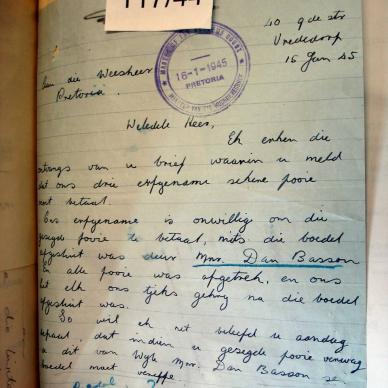 117/44
40 9de str
Vrededorp
15 Jan 45
Aan die Weesheer
Pretoria.
16-1-1945
PRETORIA
Weledele Heer,
Ek erken die
ontvangs van u brief waarin u meld
dat ons drie erfgename sekere fooie
moet betaal.
Ons erfgename is onwillig om die
gesegde fooie te betaal, mits die boedel
afgesluit was deur Mnr. Dan Basson
En alle fooie was afgetrek, en ons
het elk ons tjeks gekry na die boedel
afgesluit was.
So wil ek net beleefd u aandag
bepaal, dat indien u gesegde fooie verwag
u dit van Wyle Mnr. Dan Basson se
boedel moet vereffen
Boedel